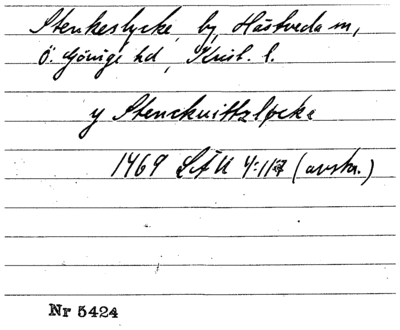 Stenkeslycke, by, Hästveda sn,
Ö. Göinge hd, Krist. l.
y Stenckuitzløcke
1469 LÄU 4:117 (avskr.)
Nr 5424